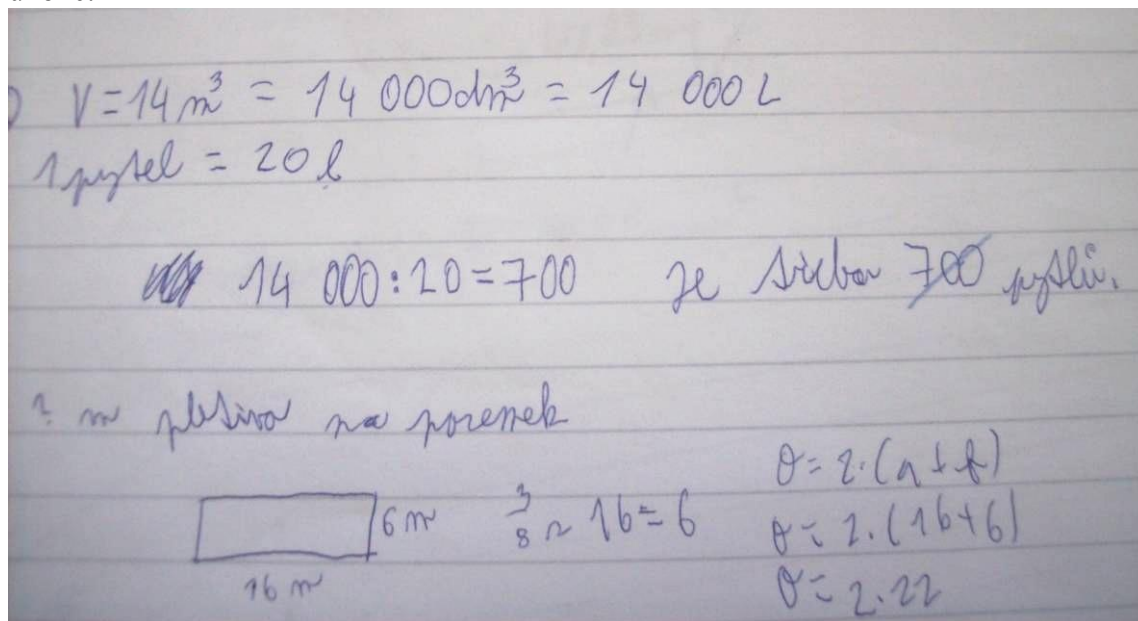 V = 14 m³ = 14 000 dm³ = 14 000 L
1 pytel = 20 l
14 000 : 20 = 700 Je třeba 700 pytlů.
? m pletiva na pozemek
6 m
16 m
3/8 z 16 = 6
O = 2.(a + b)
O = 2.(16+6)
O = 2.22